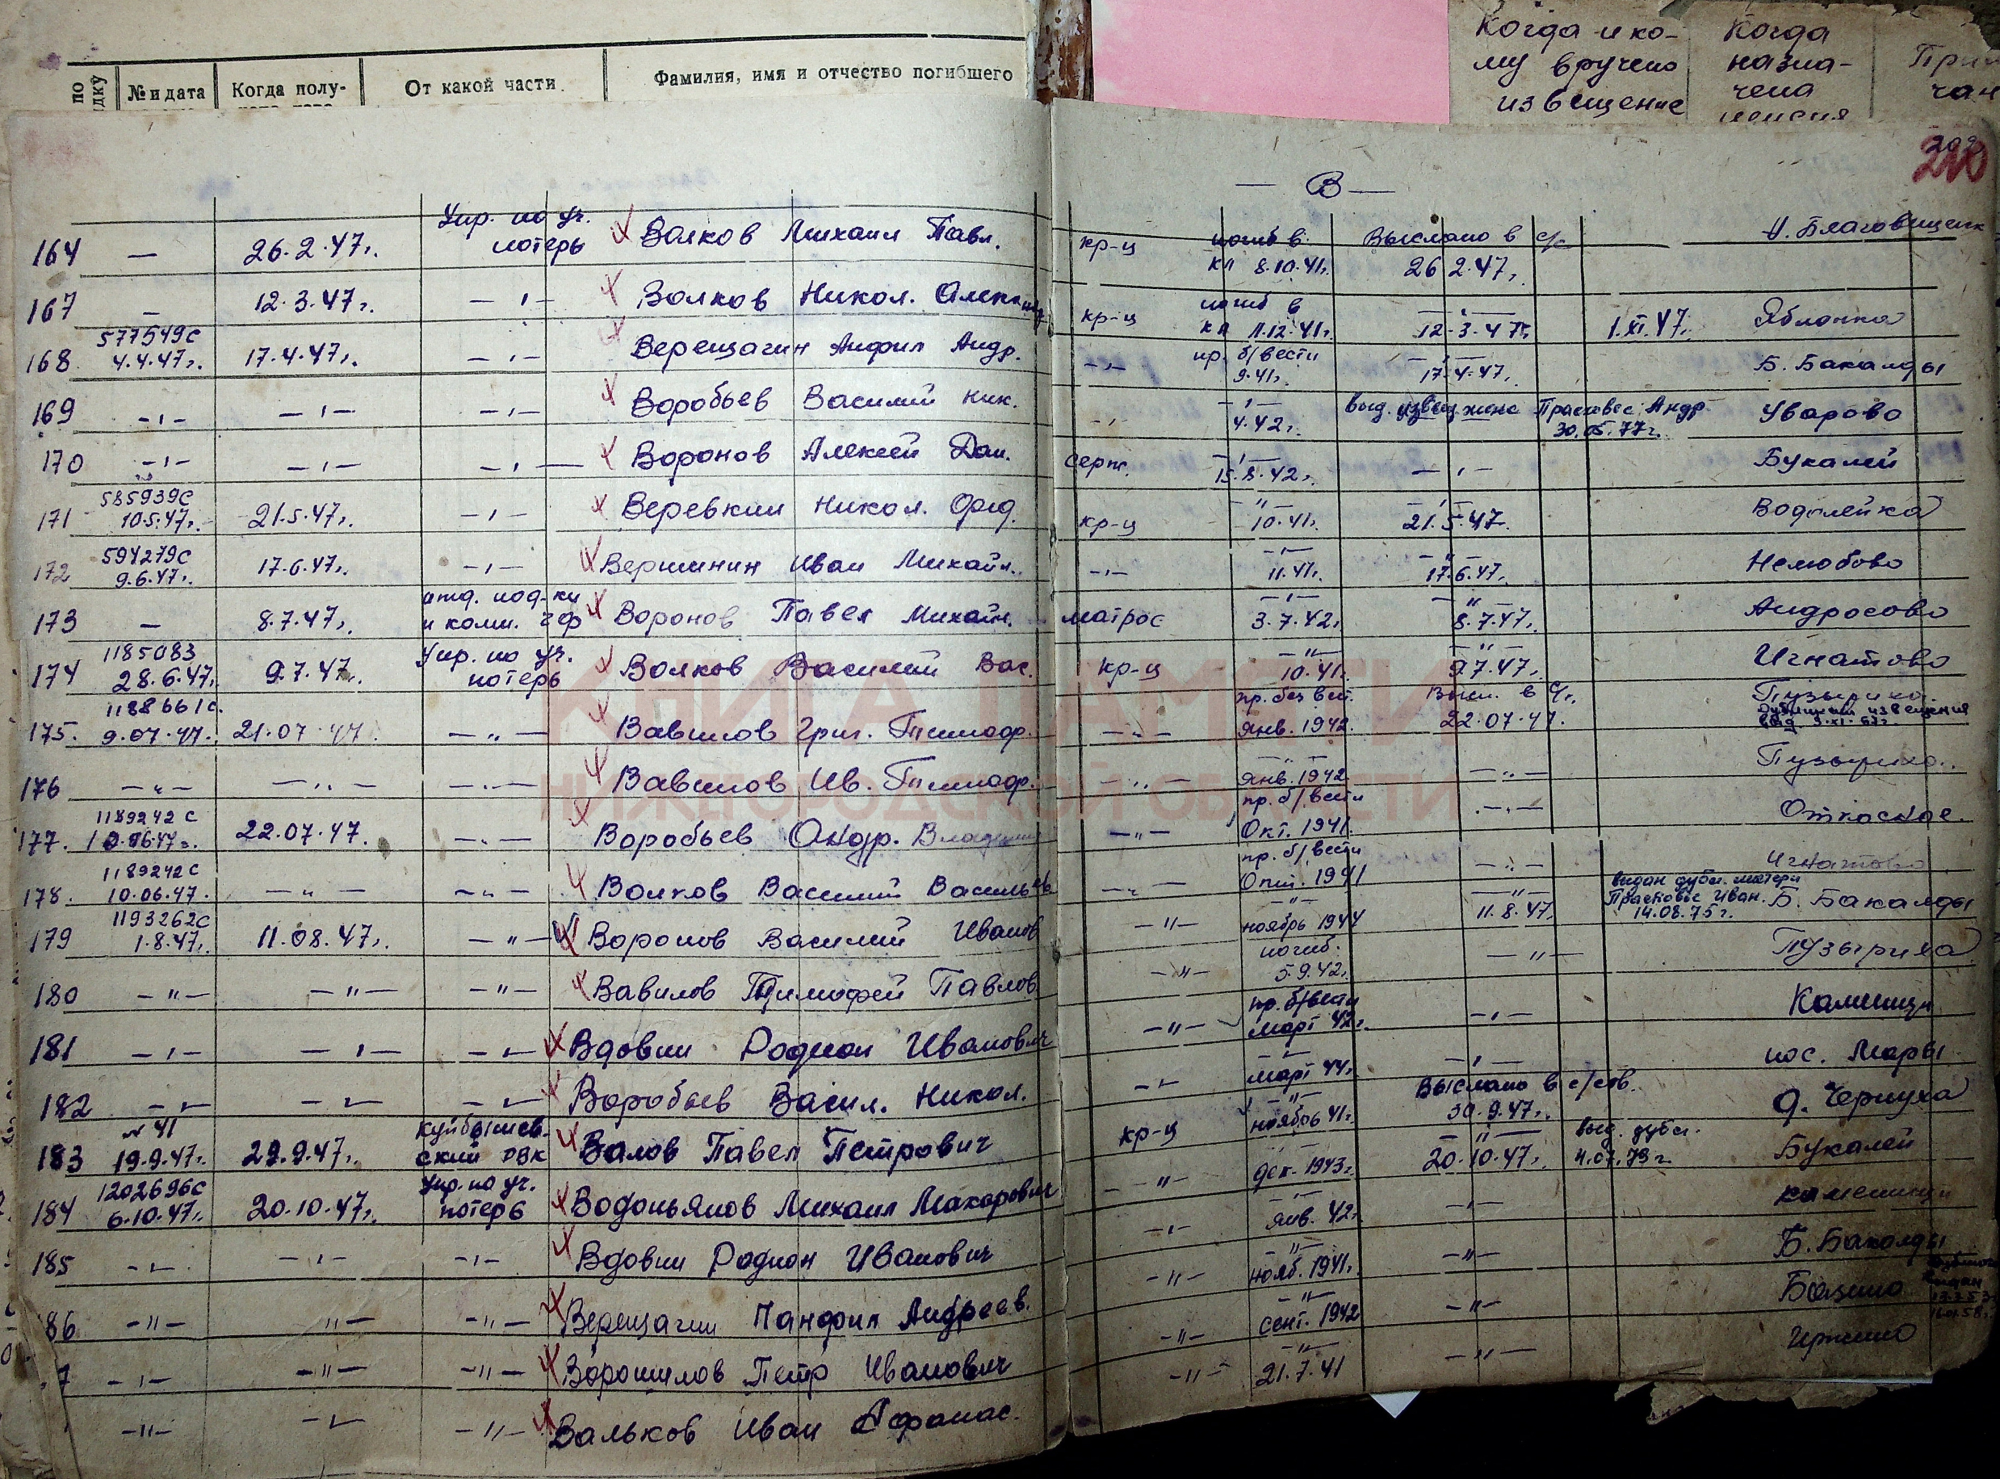 по
№ и дата
Когда полу-
От какой части
Фамилия, имя и отчество погибшего
Когда и ко-
му вручено
извещение
Когда
назна-
чена
пенсия
При
чан
210
— В —
164 — 26.2.47г. Упр. по уч. потерь Волков Михаил Павл. кр-ц погиб в кл 8.10.41г. Выслано в с/с 26.2.47г. Благовещенск
167 — 12.3.47г. —ı— Волков Никол. кр-ц погиб в кл 11.12.41г. —ı— 12.3.47г. 1.XI.47г. Яблонка
168 577549с 4.4.47г. 17.4.47г. —ı— Верещагин Анфил Андр. —ı— пр. б/вести 9.41г. —ı— 17.4.47г. Б. Бакалды
169 —ı— —ı— —ı— Воробьев Василий Ник. —ı— —ı— 4.42г. выд. извещ жене Прасковее Андр 30.05.77г. Уварово
170 —ı— —ı— —ı— Воронов Алексей Дан. серж. —ı— 15.8.42г. —ı— Букалей
171 585939с 10.5.47г. 21.5.47г. —ı— Веревкин Никол. кр-ц —"— 10.41г. —ı— 21.5.47 Водолейка
172 594279с 9.6.47г. 17.6.47г. —ı— Вершинин Иван Михайл. —ı— —ı— 11.41г. —"— 17.6.47г. Нелюбово
173 — 8.7.47г. отд. под-ки и комп. ЧФ Воронов Павел Михайл. матрос —ı— 3.7.42г. —"— 8.7.47г. Андросово
174 1185083 28.6.47г. 9.7.47г. Упр. по уч. потерь Волков Василий Вас. кр-ц —"— 10.41г. —"— 9.7.47г. Игнатово
175. 1188661с. 9.07.47г. 21.07.47г. —"— Вавилов Григ. Тимоф. —"— пр. без вест. янв. 1942 Высл. в с/с. 22.07.47. Пузыриха. Дубликат извещения выд
176 —"— —"— —"— Вавилов Ив. Тимоф. —"— —"— янв. 1942 —"— Пузыриха.
177. 1189242с 22.07.47. —"— Воробьев Андр. —"— пр. б/вести Окт. 1941. —"— Откосное.
178. 1189242с 10.06.47. —"— —"— Волков Василий Василье —"— пр. б/вести Окт. 1941 —"— Игнатово
179 1193262с 1.8.47г. 11.08.47г. —"— Воронов Василий Иванов —"— —"— ноябрь 1944 —"— 11.8.47г. выдан дубл. матери Прасковье Иван. 14.08.75г. Б. Бакалды
180 —"— —"— —"— Вавилов Тимофей Павлов. —"— погиб. 5.9.42г. —"— Пузыриха
181 —ı— —ı— —ı— Вдовин Родион Иванович —"— пр. б/вести март 42г. —ı— Каменищи
182 —ı— —ı— —ı— Воробьев Васил. Никол. —ı— —ı— март 44г. —ı— пос. Мары
183 №41 19.9.47г. 29.9.47г. Куйбышев-ский РВК Валов Павел Петрович кр-ц —"— ноябрь 41г. Выслано в с/сов. 30.9.47г. д. Чернуха
184 1202696с 6.10.47г. 20.10.47г. Упр. по уч. потерь Водопьянов Михаил Макарович —"— дек. 1943г. —"— 20.10.47г. выд. дубл. Букалей
185 —ı— —ı— —ı— Вдовин Родион Иванович —ı— —"— янв. 42г. —ı— Каменищи
86 —"— —"— —"— Верещагин Панфил Андреев. —"— —"— нояб. 1941г. —"— Б. Бакалды
7 —ı— —"— —"— Ворошилов Петр Иванович —"— —"— сент. 1942 —"—
—"— —ı— —"— Вальков Иван Афанас. —"— —"— 21.7.41 —"—
КНИГА ПАМЯТИ
НИЖЕГОРОДСКОЙ ОБЛАСТИ